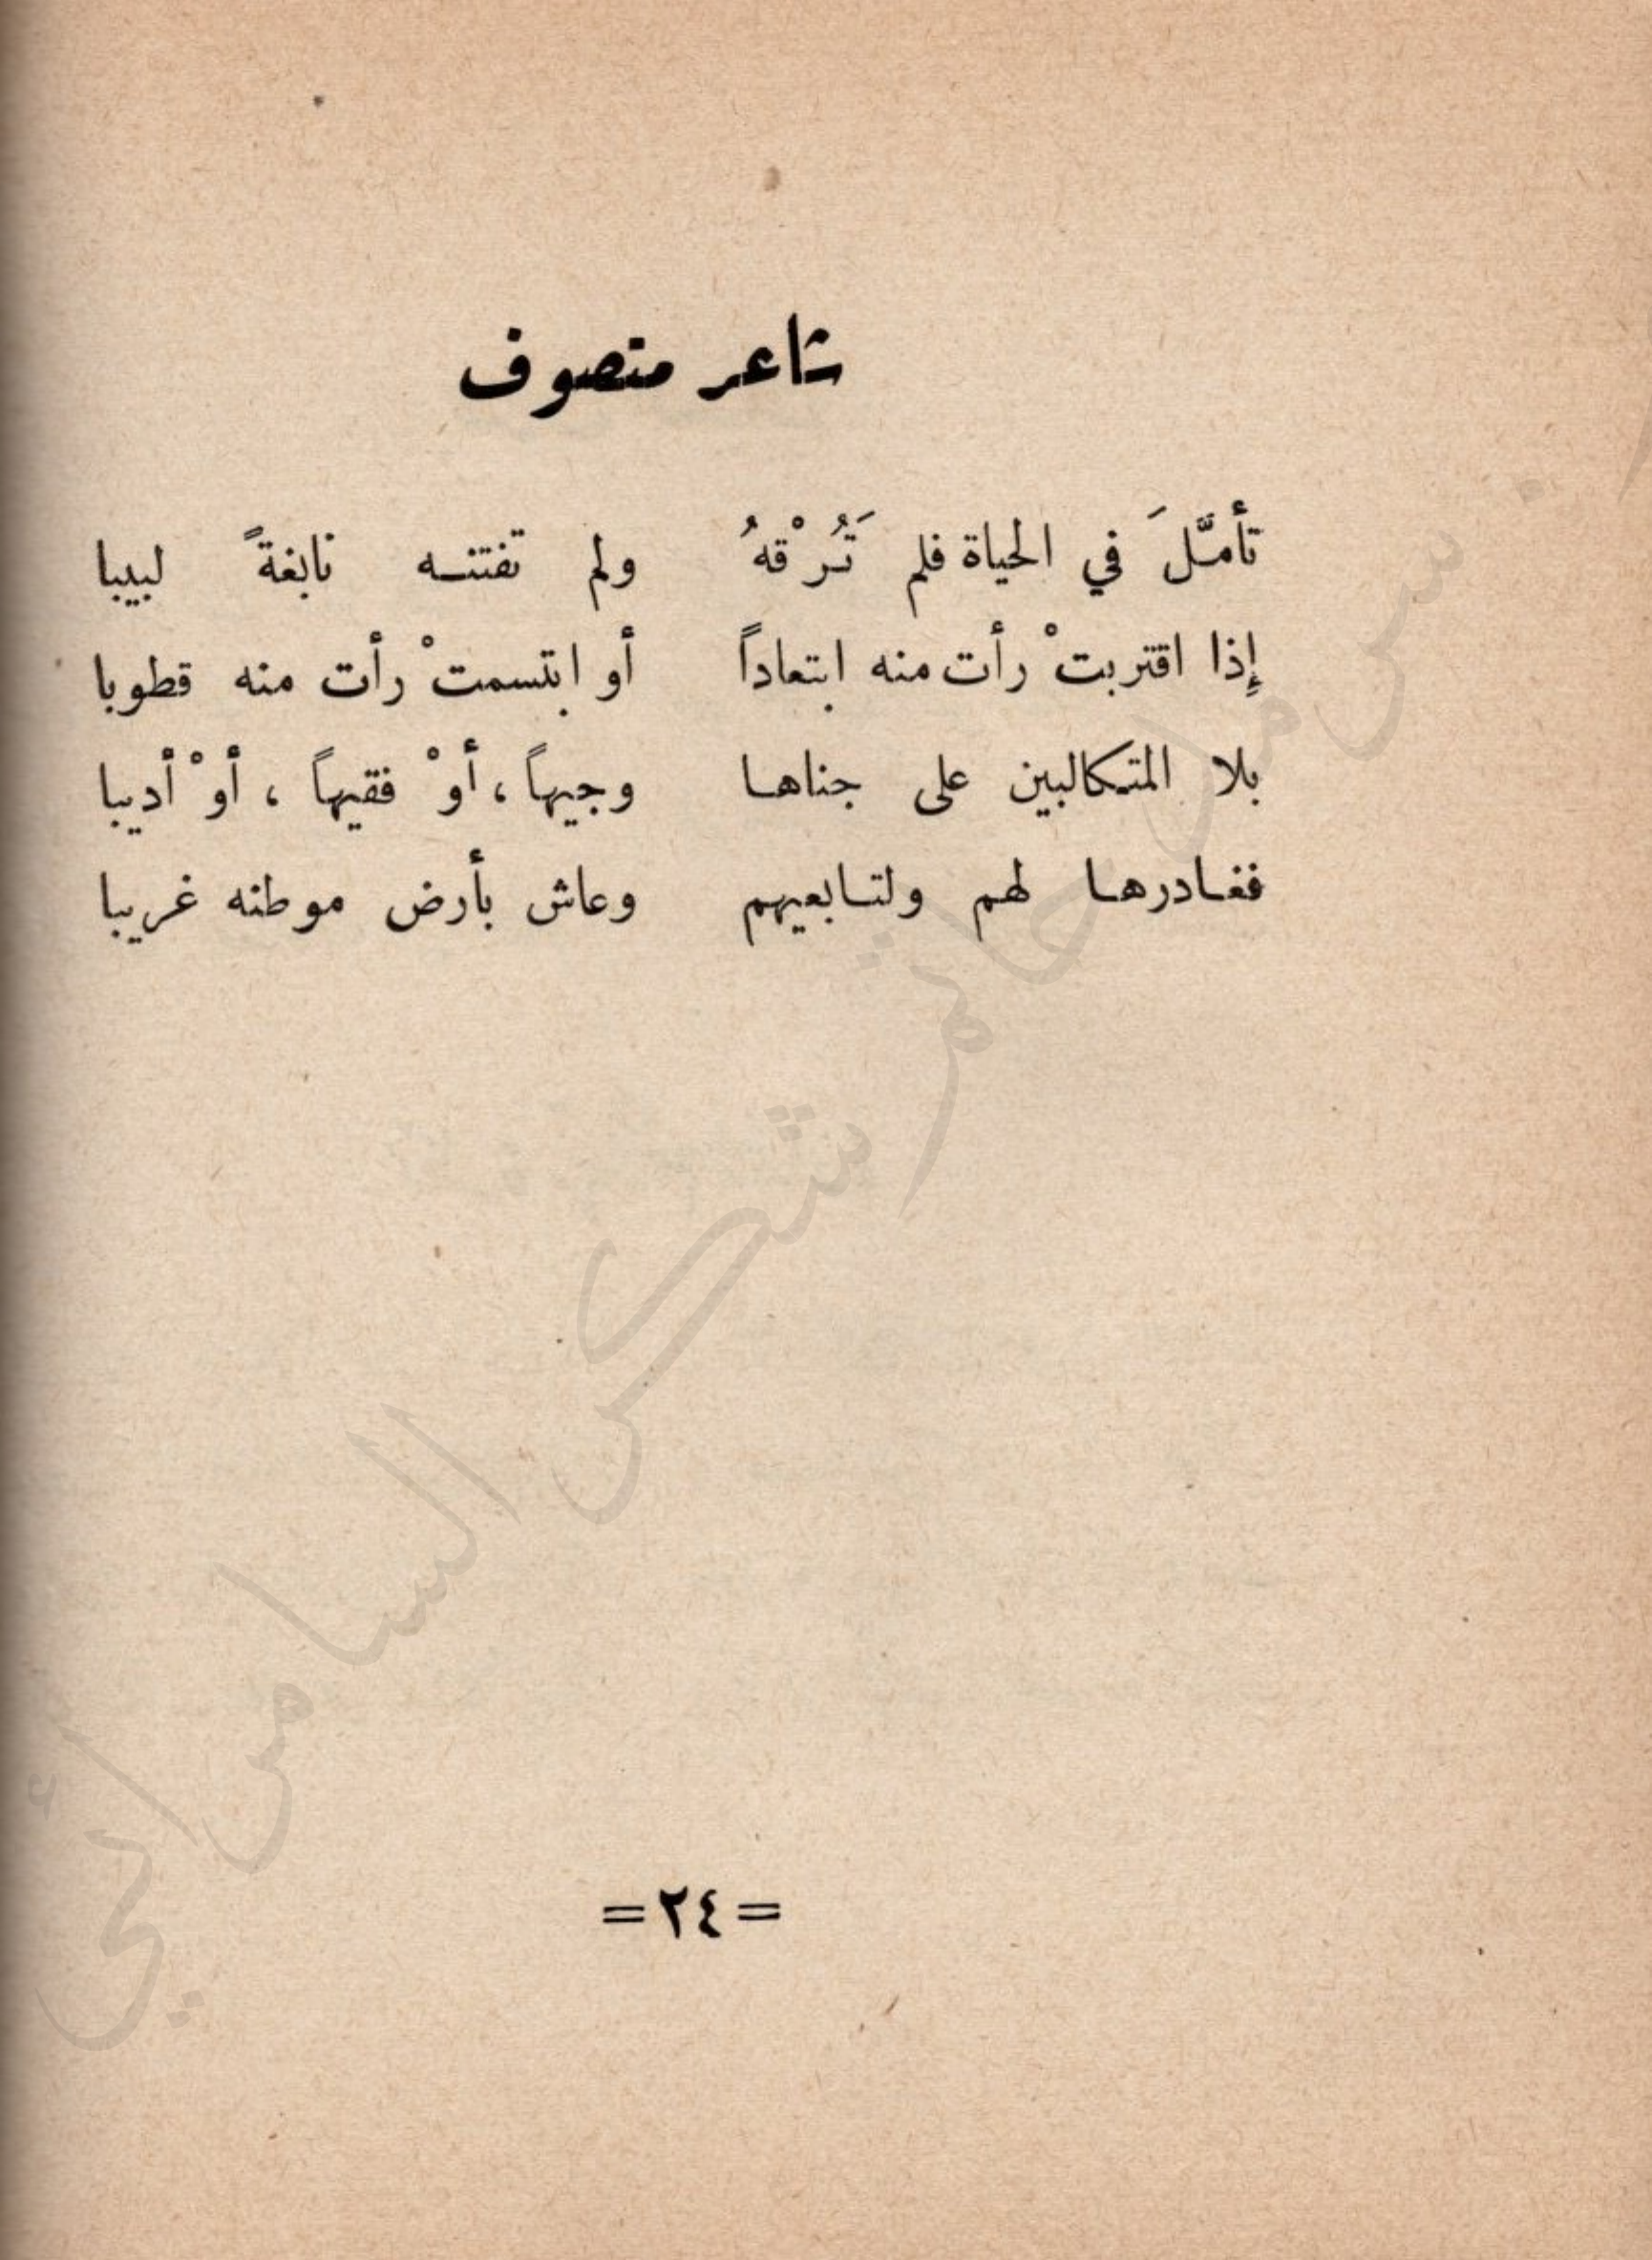 شاعر متصوف
تأمَّلَ في الحياة فلم تَرُقْهُ ولم تفتنه نابغةً لبيبا
إِذا اقتربتْ رأت منه ابتعاداً أو ابتسمتْ رأت منه قطوبا
بلا المتكالبين على جناها وجيهاً ، أوْ فقيهاً ، أوْ أديبا
فغادرها لهم ولتابعيهم وعاش بأرض موطنه غريبا
=٢٤=
شكر السامرائي